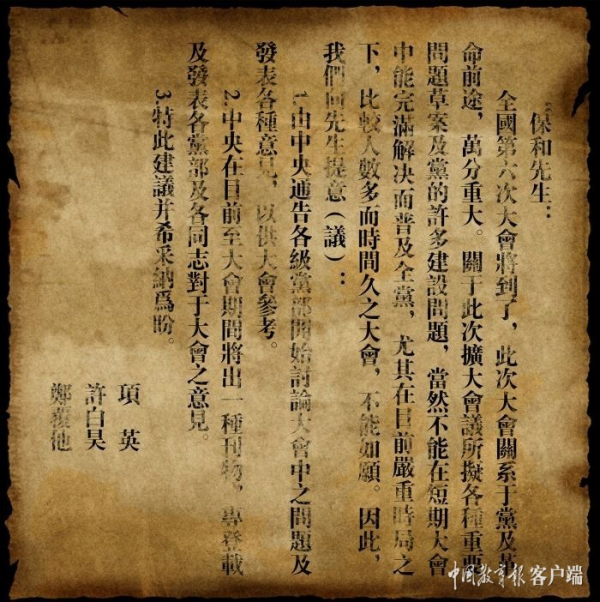 保和先生：
全國第六次大會將到了，此次大會關系于黨及革
命前途，萬分重大。關于此次擴大會議所擬各種重要
問題草案及黨的許多建設問題，當然不能在短期大會
中能完滿解决而普及全黨，尤其在目前嚴重時局之
下，比較人數多而時間久之大會，不能如願。因此，
我們向先生提意（議）：
1.由中央通告各級黨部開始討論大會中之問題及
發表各種意見，以供大會參考。
2.中央在目前至大會期間將出一種刊物，專登載
及發表各黨部及各同志對于大會之意見。
3.特此建議并希采納爲盼。
項英
許白昊
鄭覆他
中国教育报客户端